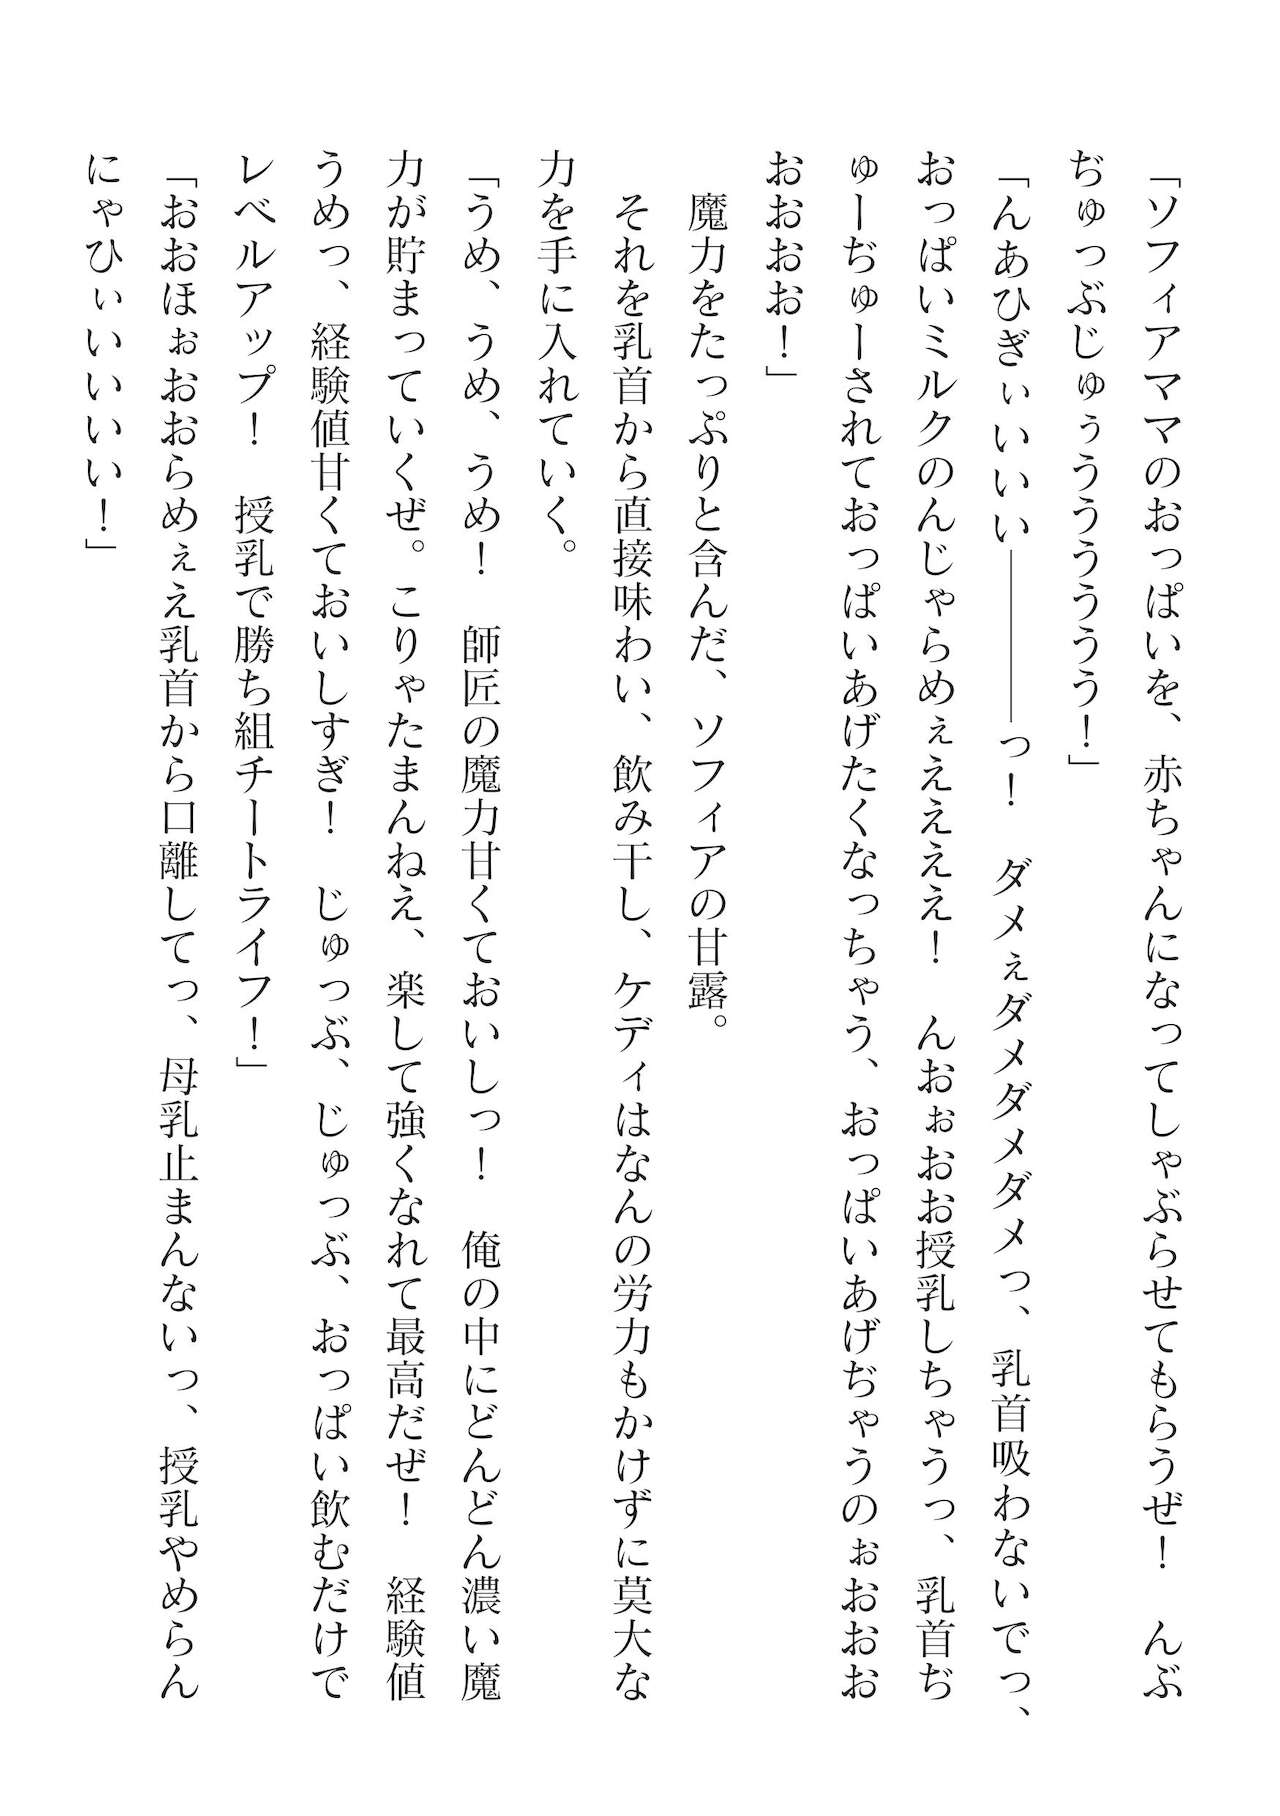 「ソフィアママのおっぱいを、赤ちゃんになってしゃぶらせてもらうぜ！　んぶ
ぢゅっっぶじゅぅうううううう！」
「んあひぎぃいいい――――っ！　ダメぇダメダメダメっ、乳首吸わないでっ、
おっぱいミルクのんじゃらめぇええええ！　んおぉおお授乳しちゃうっ、乳首ぢ
ゅーぢゅーされておっぱいあげたくなっちゃう、おっぱいあげぢゃうのぉおおお
おおおお！」
　魔力をたっぷりと含んだ、ソフィアの甘露。
　それを乳首から直接味わい、飲み干し、ケディはなんの労力もかけずに莫大な
力を手に入れていく。
「うめ、うめ、うめ！　師匠の魔力甘くておいしっ！　俺の中にどんどん濃い魔
力が貯まっていくぜ。こりゃたまんねえ、楽して強くなれて最高だぜ！　経験値
うめっ、経験値甘くておいしすぎ！　じゅっぶ、じゅっぶ、おっぱい飲むだけで
レベルアップ！　授乳で勝ち組チートライフ！」
「おおほぉおおおらめぇえ乳首から口離してっ、母乳止まんないっ、授乳やめらん
にゃひぃいいいい！」